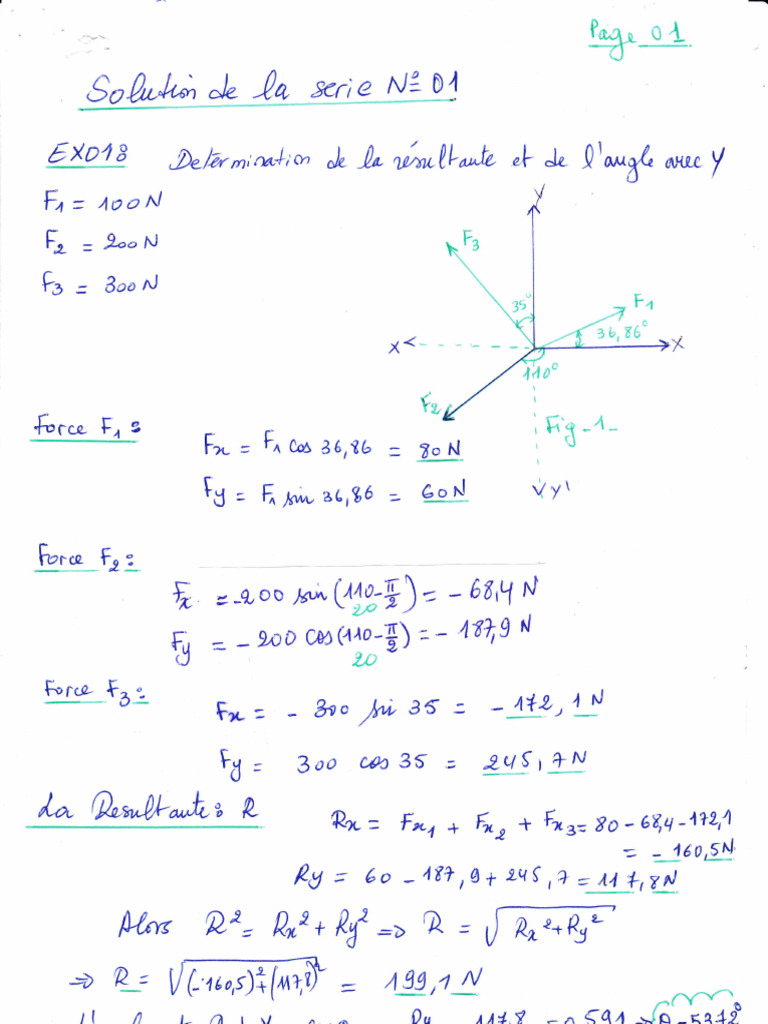 Page 01
Solution de la serie N° 01
EX01: Determination de la résultante et de l'angle avec Y
F1 = 100 N
F2 = 200 N
F3 = 300 N
Y
F3
35°
F1
36,86°
X
X
110°
F2
Fig-1-
Y'
Force F1:
Fx = F1 cos 36,86 = 80 N
Fy = F1 sin 36,86 = 60 N
Force F2:
Fx = -200 sin (110-π/2) = - 68,4 N
20
Fy = - 200 cos (110-π/2) = - 187,9 N
20
Force F3:
Fx = - 300 sin 35 = - 172,1 N
Fy = 300 cos 35 = 245,7 N
La Resultante: R
Rx = Fx1 + Fx2 + Fx3 = 80 - 68,4 - 172,1
= - 160,5 N
Ry = 60 - 187,9 + 245,7 = 117,8 N
Alors R² = Rx² + Ry² => R = √Rx² + Ry²
=> R = √(-160,5)² + (117,8)² = 199,1 N
Ry 117,8 = 0,591